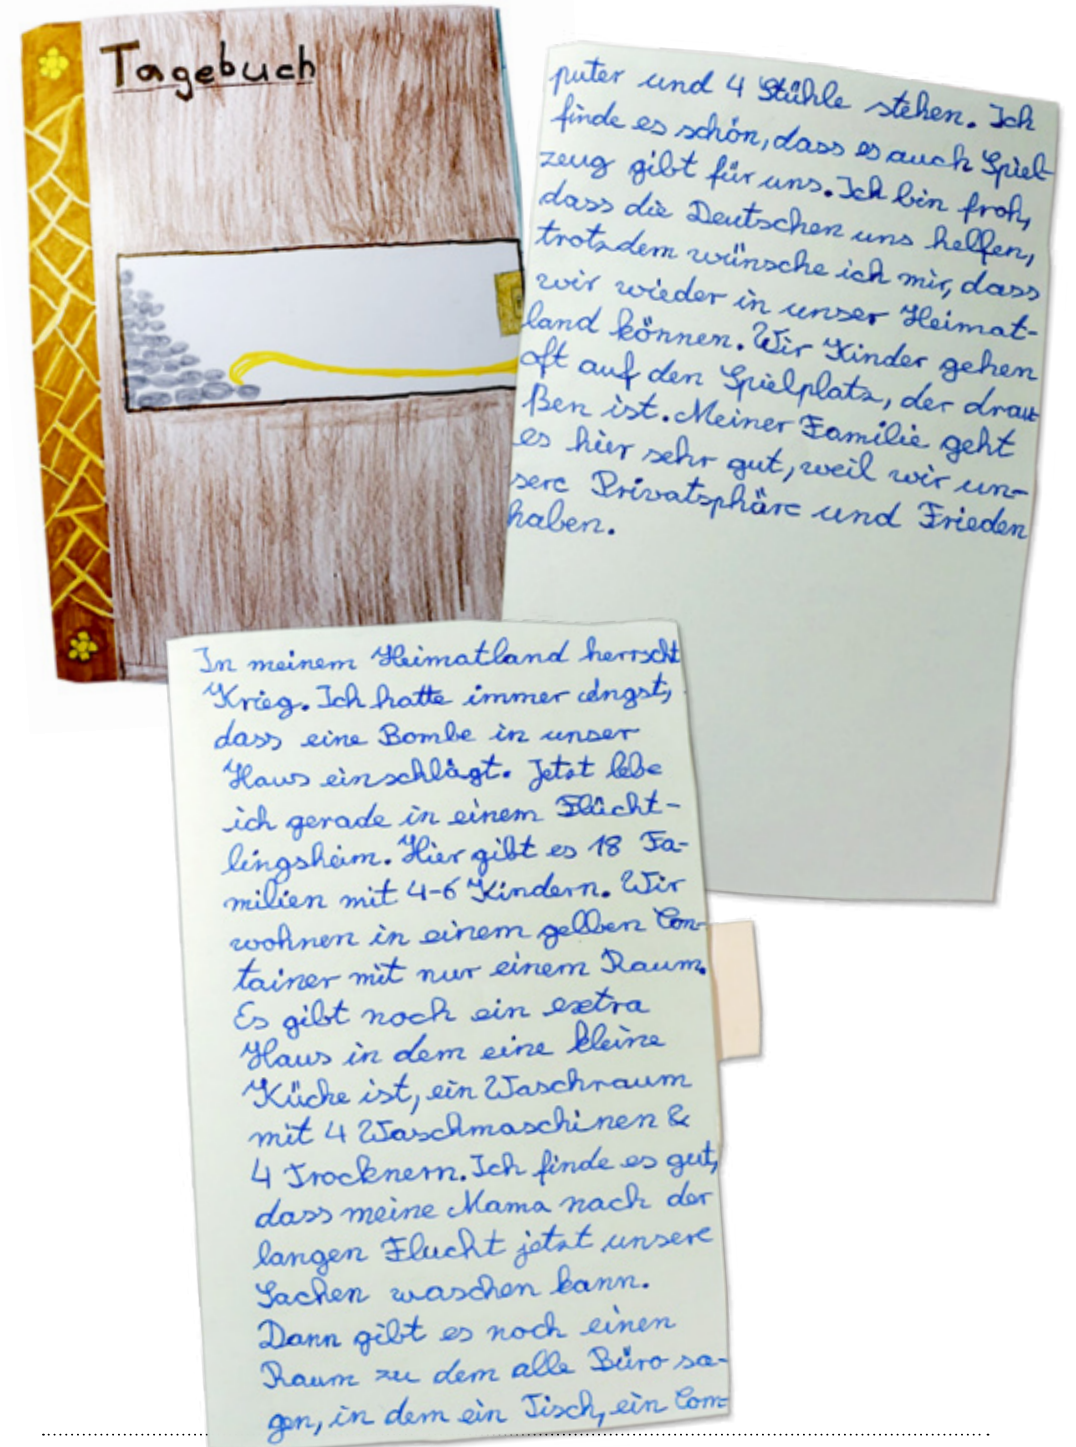 Tagebuch
In meinem Heimatland herrscht
Krieg. Ich hatte immer Angst,
dass eine Bombe in unser
Haus einschlägt. Jetzt lebe
ich gerade in einem Flücht-
lingsheim. Hier gibt es 18 Fa-
milien mit 4-6 Kindern. Wir
wohnen in einem gelben Con-
tainer mit nur einem Raum.
Es gibt noch ein extra
Haus in dem eine kleine
Küche ist, ein Waschraum
mit 4 Waschmaschinen &
4 Trocknern. Ich finde es gut,
dass meine Mama nach der
langen Flucht jetzt unsere
Sachen waschen kann.
Dann gibt es noch einen
Raum zu dem alle Büro sa-
gen, in dem ein Tisch, ein Com-
puter und 4 Stühle stehen. Ich
finde es schön, dass es auch Spiel-
zeug gibt für uns. Ich bin froh,
dass die Deutschen uns helfen,
trotzdem wünsche ich mir, dass
wir wieder in unser Heimat-
land können. Wir Kinder gehen
oft auf den Spielplatz, der drau
ßen ist. Meiner Familie geht
es hier sehr gut, weil wir un-
sere Privatsphäre und Frieden
haben.